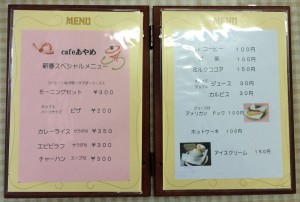 MENU
cafeあやめ
新春スペシャルメニュー
モーニングセット ￥300
ピザ ￥200
カレーライス サラダ付 ￥350
エビピラフ サラダ付 ￥300
チャーハン スープ付 ￥300
MENU
コーヒー 100円
茶 100円
ミルクココア 150円
ジュース 30円
カルピス 30円
アメリカン ドック 100円
ホットケーキ 100円
アイスクリーム 150円